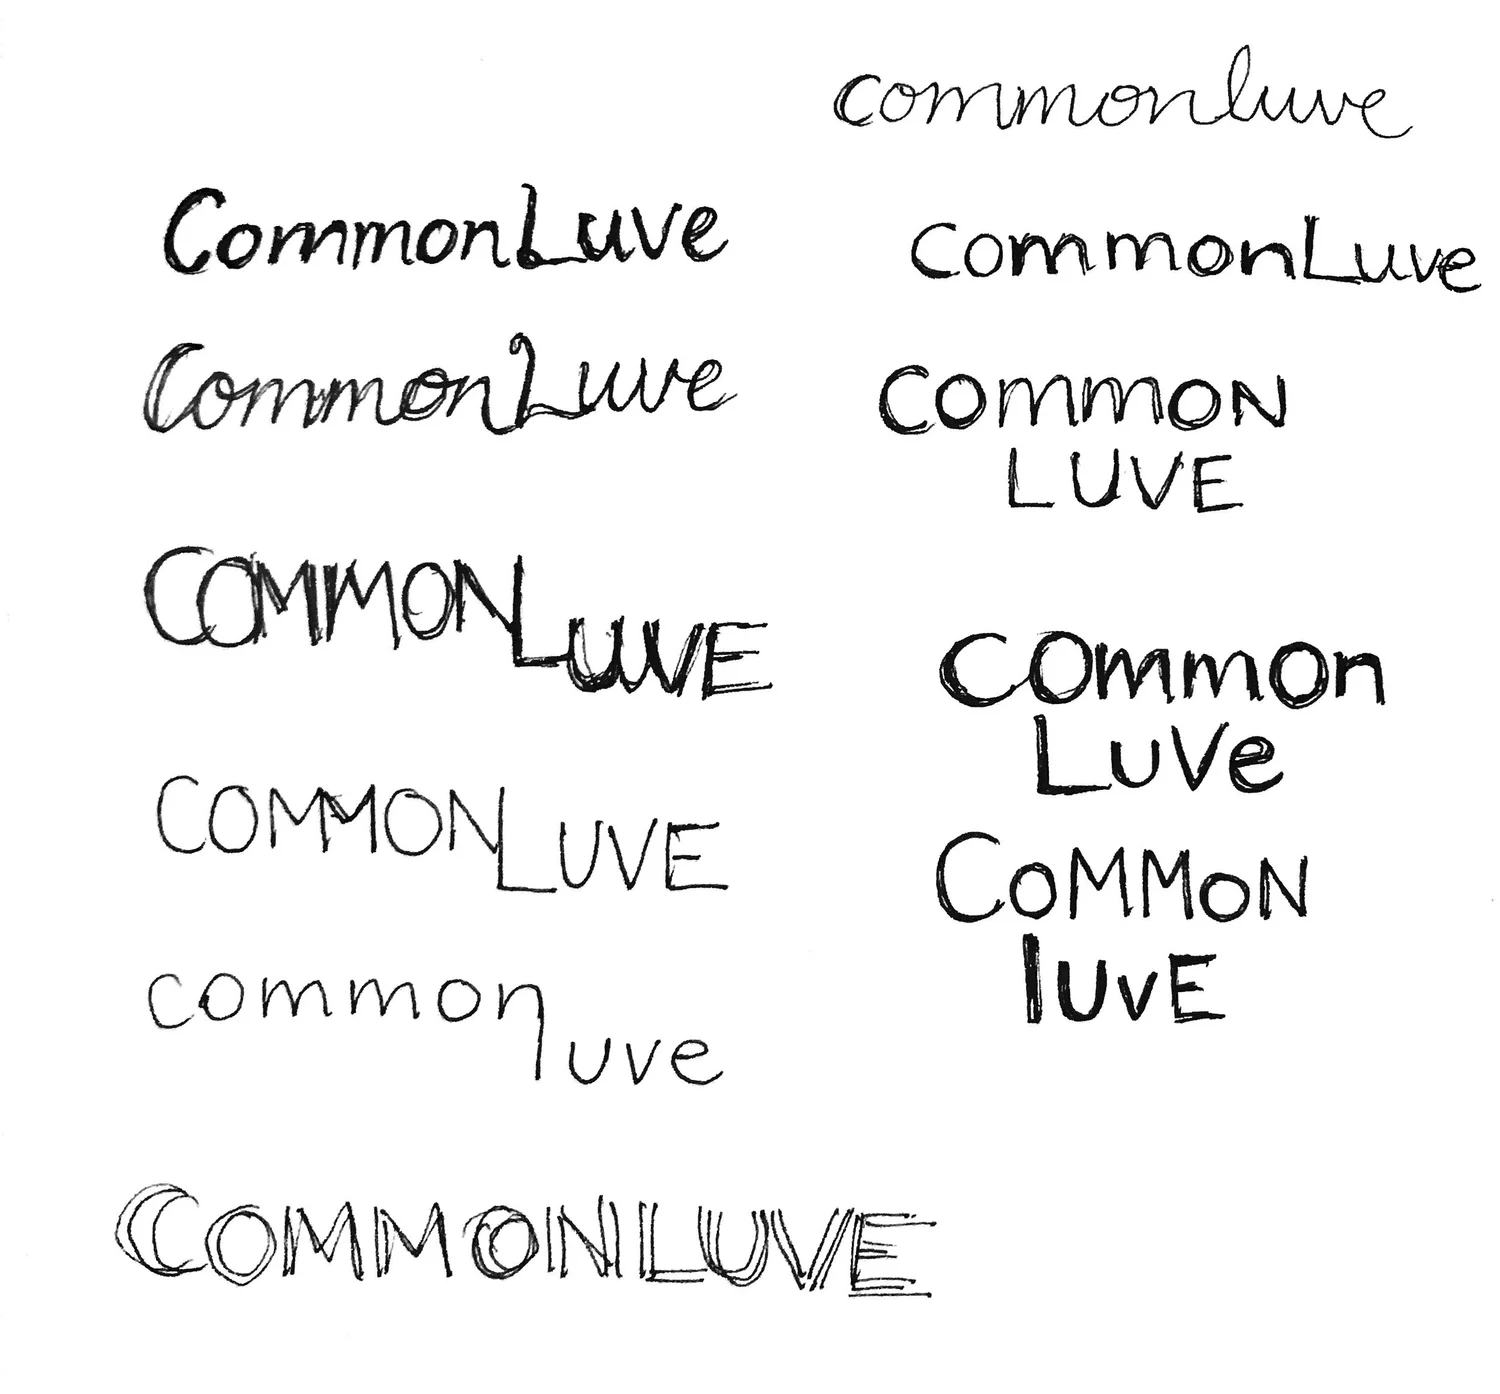 commonluve
CommonLuve
CommonLuve
CommonLuve
COMMON
LUVE
COMMONLUVE
Common
LuVe
COMMONLUVE
CoMMoN
lUvE
common
luve
COMMONLUVE